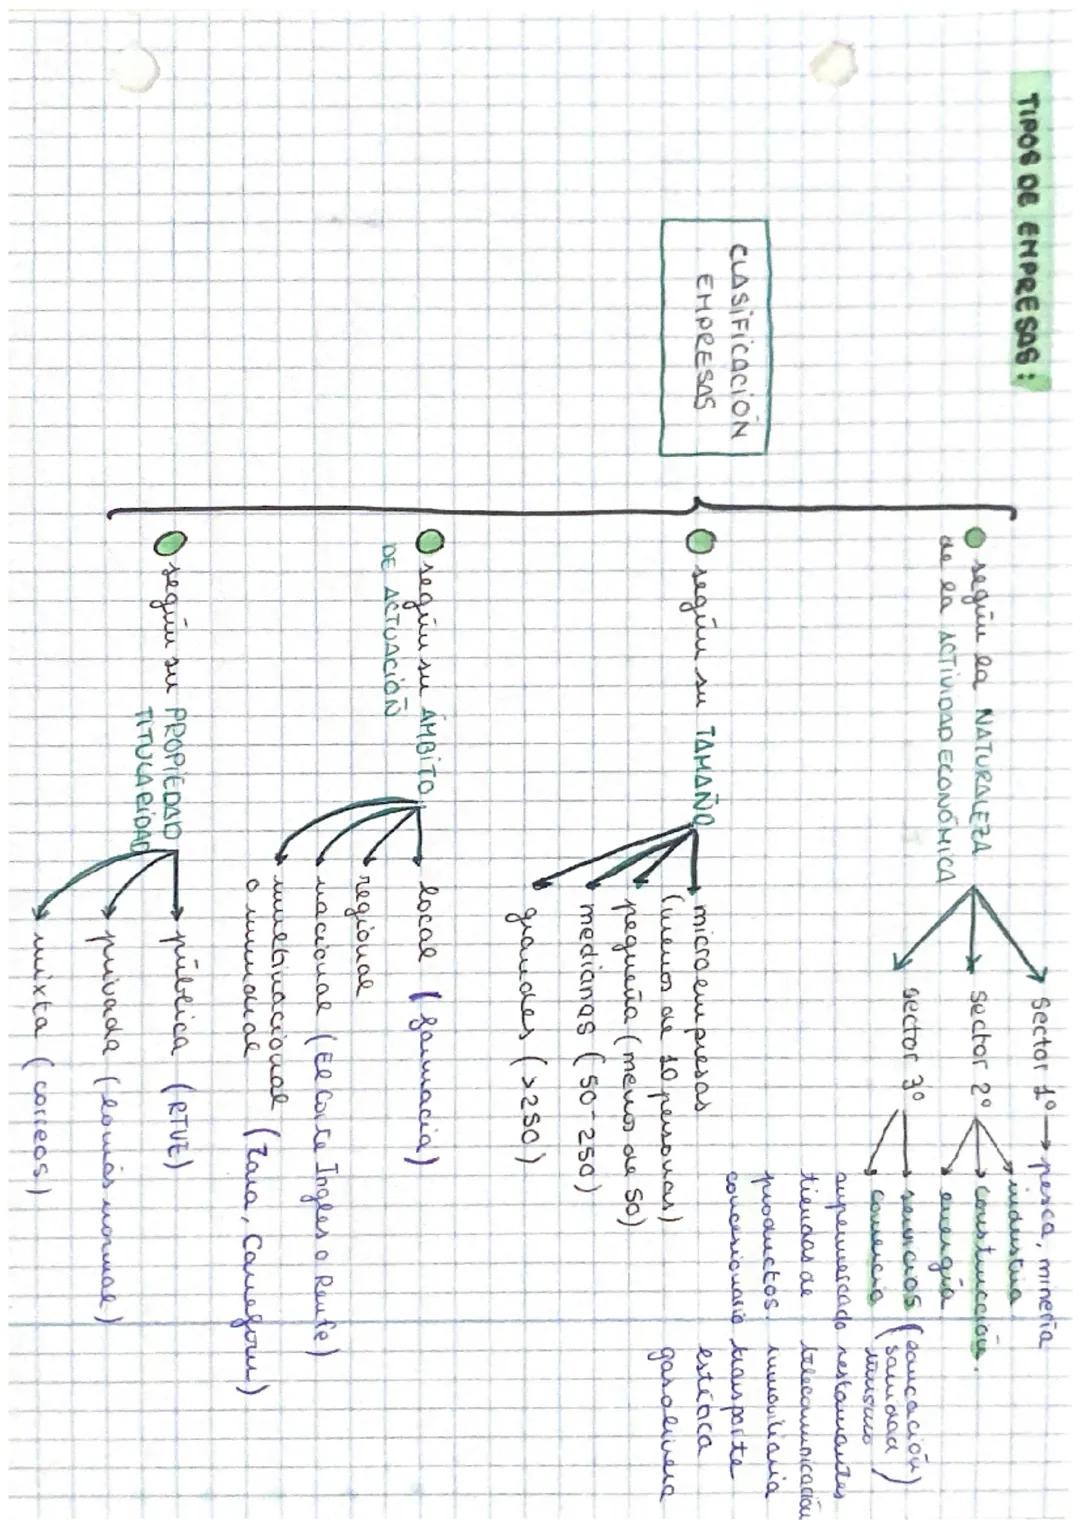 TIPOS DE EMPRESAS:
CLASIFICACIÓN
EMPRESAS
según la NATURALEZA
de la ACTIVIDAD ECONÓMICA
Sector 1º → pesca, minería
Sector 2º
industria.
construcción.
energía.
sector 3º
servicios (educación)
(sanidad)
turismo
comercio
supermercado
tiendas de
productos.
concesionario
restaurantes
telecomunicación
inmoviliaria
transporte
estética
gasolinera
según su TAMAÑO
microempresas
(menos de 10 personas)
pequeña (menos de 50)
medianas (50-250)
grandes (>250)
según su ÁMBITO
DE ACTUACIÓN
local (farmacia)
regional
nacional (El Corte Ingles o Renfe)
multinacional
o mundial (Zara, Carrefour)
según su PROPIEDAD
TITULARIDAD
pública (RTVE)
privada (lo más normal)
mixta (correos)